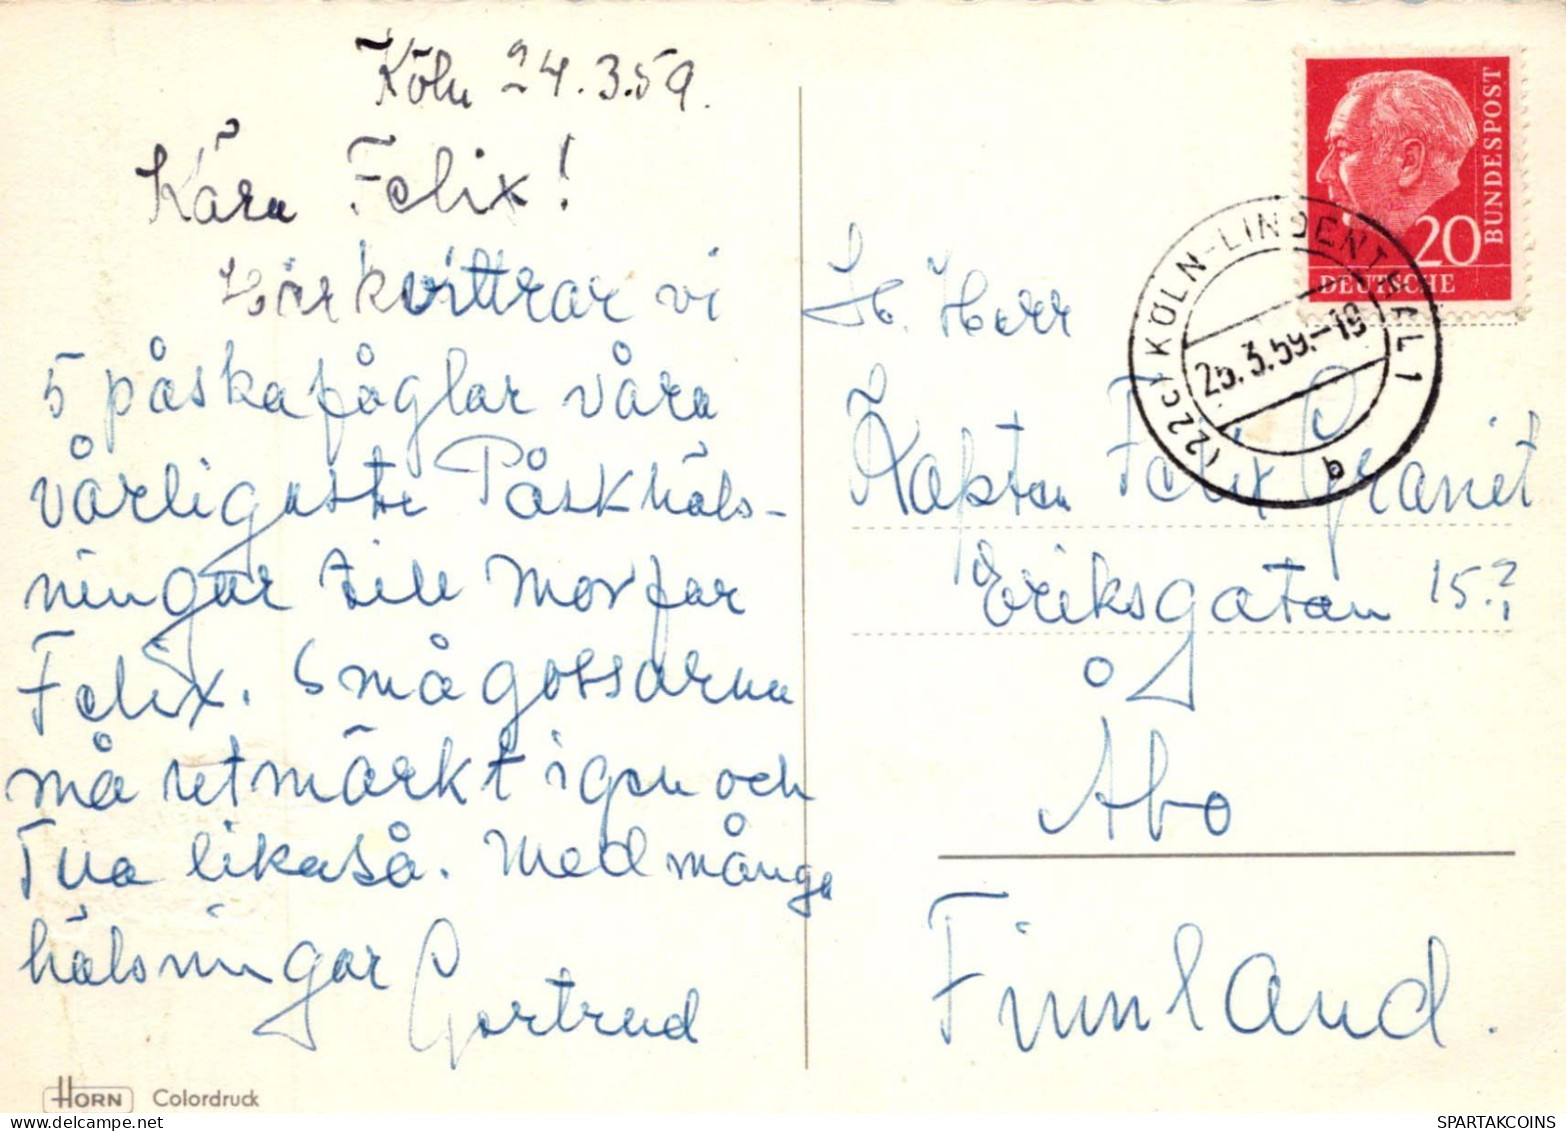 Köln 24.3.59.
Kära Felix!
Här kvittrar vi
5 påskafåglar våra
vårligaste Påskhäls-
ningar till Morfar
Felix. Smågossarna
må utmärkt igen och
Tua likaså. Med många
hälsningar
Gertrud
HORN Colordruck
BUNDESPOST
20
DEUTSCHE
(22c) KÖLN-LINDENTHAL 1
25.3.59.-19
b
H. Herr
Kapten Felix Granit
Eriksgatan 15?
Åbo
Finnland.
SPARTAKCOINS